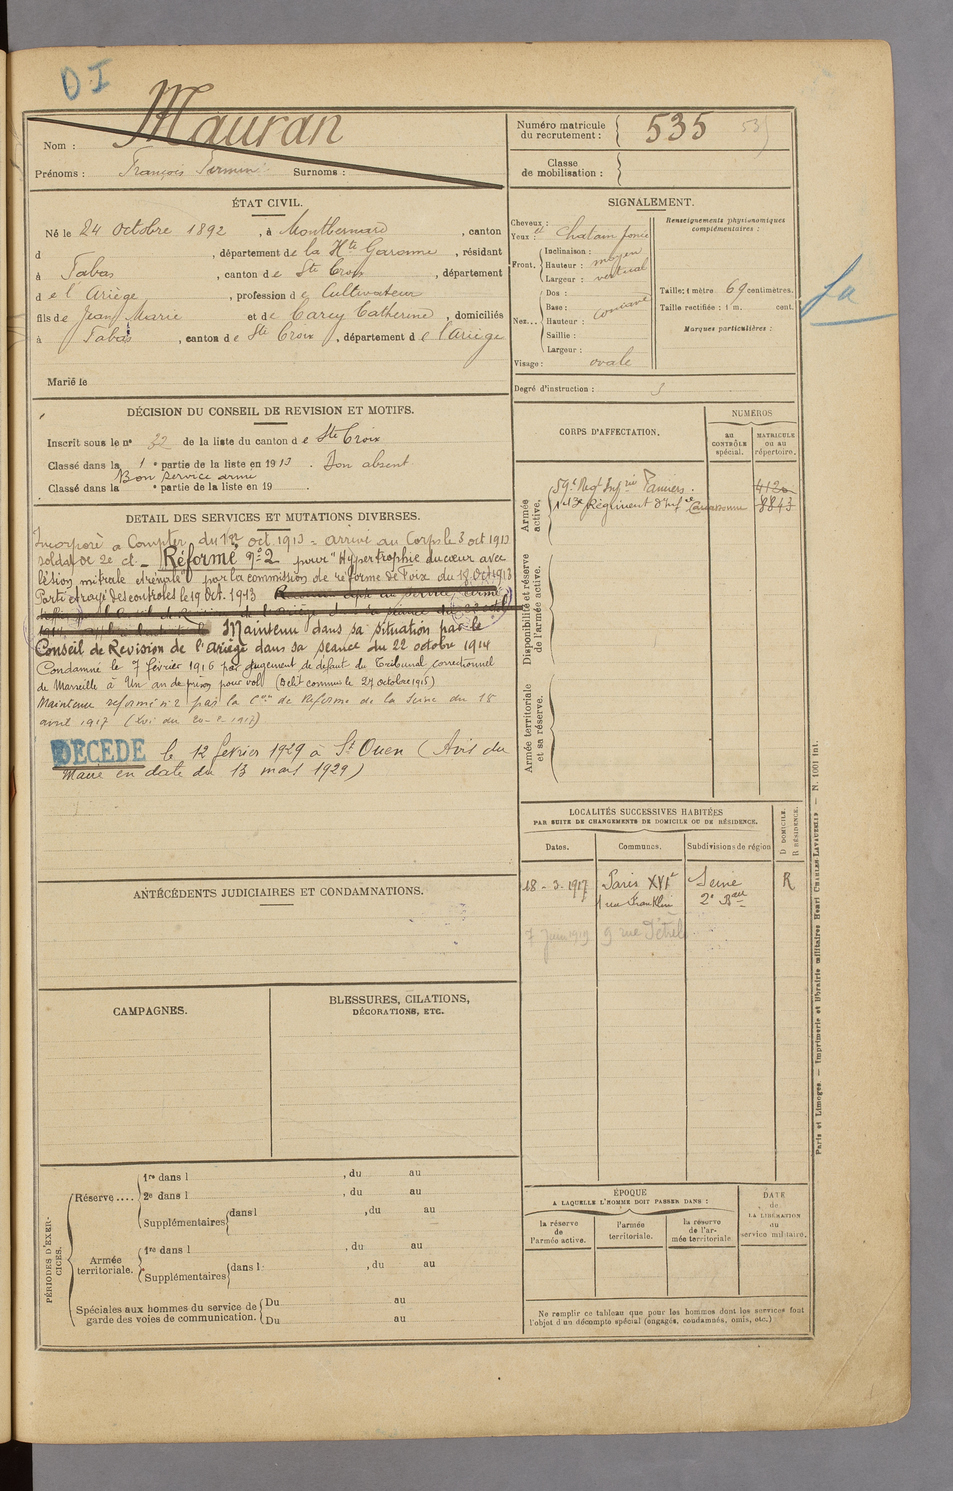 D I
Nom : Mauran
Prénoms : François Firmin Surnoms :
Numéro matricule du recrutement : 535
Classe de mobilisation :
ÉTAT CIVIL.
Né le 24 Octobre 1892, à Montbernard, canton
d , département de la Hte Garonne, résidant
à Fabas, canton de Ste Croix, département
de l'Ariège, profession de Cultivateur
fils de Jean Marie et de Carcy Catherine, domiciliés
à Fabas, canton de Ste Croix, département de l'Ariège
Marié le
SIGNALEMENT.
Cheveux : et
Yeux : chatain foncé
Front. Inclinaison : moyen
Hauteur : vertical
Largeur :
Nez... Dos :
Base : concave
Hauteur :
Saillie :
Largeur :
Visage : ovale
Renseignements physionomiques complémentaires :
Taille : 1 mètre 69 centimètres.
Taille rectifiée : 1 m. cent.
Marques particulières :
Degré d'instruction :
DÉCISION DU CONSEIL DE REVISION ET MOTIFS.
Inscrit sous le n° 32 de la liste du canton de Ste Croix
Classé dans la 1e partie de la liste en 1913. Bon absent
Bon service armé
Classé dans la e partie de la liste en 19
DETAIL DES SERVICES ET MUTATIONS DIVERSES.
Incorporé à Compter du 1er oct 1913 - arrivé au Corps le 3 oct 1913
soldat de 2e cl - Réformé n° 2 pour "Hypertrophie du cœur avec
lésion mitrale par la commission de réforme de Foix du 18 Oct 1913
Parti et rayé des controles le 19 Oct. 1913
Maintenu dans sa situation par le
Conseil de Revision de l'Ariège dans sa séance du 22 octobre 1914
Condamné le 7 février 1916 par jugement de défaut du Tribunal correctionnel
de Marseille à Un an de prison pour vol (Délit commis le 27 octobre 1915)
Maintenu réformé n° 2 par la Con de Réforme de la Seine du 18
avril 1917 (Loi du 20-2-1917)
DECEDE le 12 février 1929 à St Ouen (Avis du
Maire en date du 13 mars 1929)
CORPS D'AFFECTATION.
NUMÉROS
au CONTRÔLE spécial.
MATRICULE OU AU répertoire.
Armée active.
59e Regt Infrie Pamiers. 4120
Régiment d'inf Carcassonne 8843
Disponibilité et réserve de l'armée active.
Armée territoriale et sa réserve.
LOCALITÉS SUCCESSIVES HABITÉES
PAR SUITE DE CHANGEMENTS DE DOMICILE OU DE RÉSIDENCE.
Dates. Communes. Subdivisions de région
D DOMICILE. R RÉSIDENCE.
18 - 3 - 1917 Paris XVIe Seine R
1 rue Franklin 2e Bau
7 Juin 1919 9 rue
ANTÉCÉDENTS JUDICIAIRES ET CONDAMNATIONS.
CAMPAGNES.
BLESSURES, CITATIONS,
DÉCORATIONS, ETC.
PÉRIODES D'EXERCICES.
Réserve .... 1re dans l , du au
2e dans l , du au
Supplémentaires dans l , du au
Armée territoriale. 1re dans l , du au
Supplémentaires dans l : , du au
Spéciales aux hommes du service de garde des voies de communication. Du au
Du au
ÉPOQUE
A LAQUELLE L'HOMME DOIT PASSER DANS :
la réserve de l'armée active.
l'armée territoriale.
la réserve de l'armée territoriale
DATE de LA LIBÉRATION du service militaire.
Ne remplir ce tableau que pour les hommes dont les services font
l'objet d'un décompte spécial (engagés, condamnés, omis, etc.)
Paris et Limoges. — Imprimerie et librairie militaires Henri CHARLES-LAVAUZELLE. — N. 1001 Int.